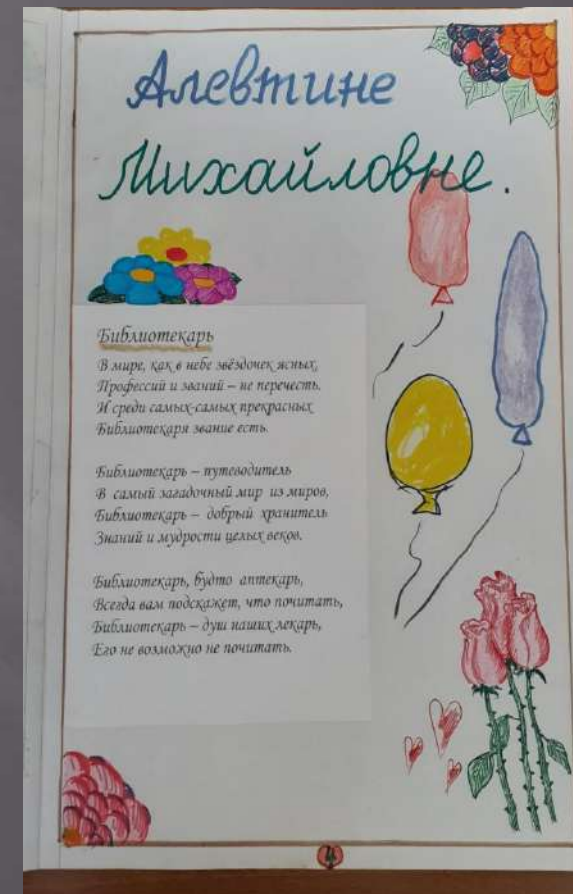 Алевтине
Михайловне.
Библиотекарь
В мире, как в небе звёздочек ясных,
Профессий и званий – не перечесть.
И среди самых-самых прекрасных
Библиотекаря звание есть.
Библиотекарь – путеводитель
В самый загадочный мир из миров,
Библиотекарь – добрый хранитель
Знаний и мудрости целых веков.
Библиотекарь, будто аптекарь,
Всегда вам подскажет, что почитать,
Библиотекарь – душ наших лекарь,
Его не возможно не почитать.
4